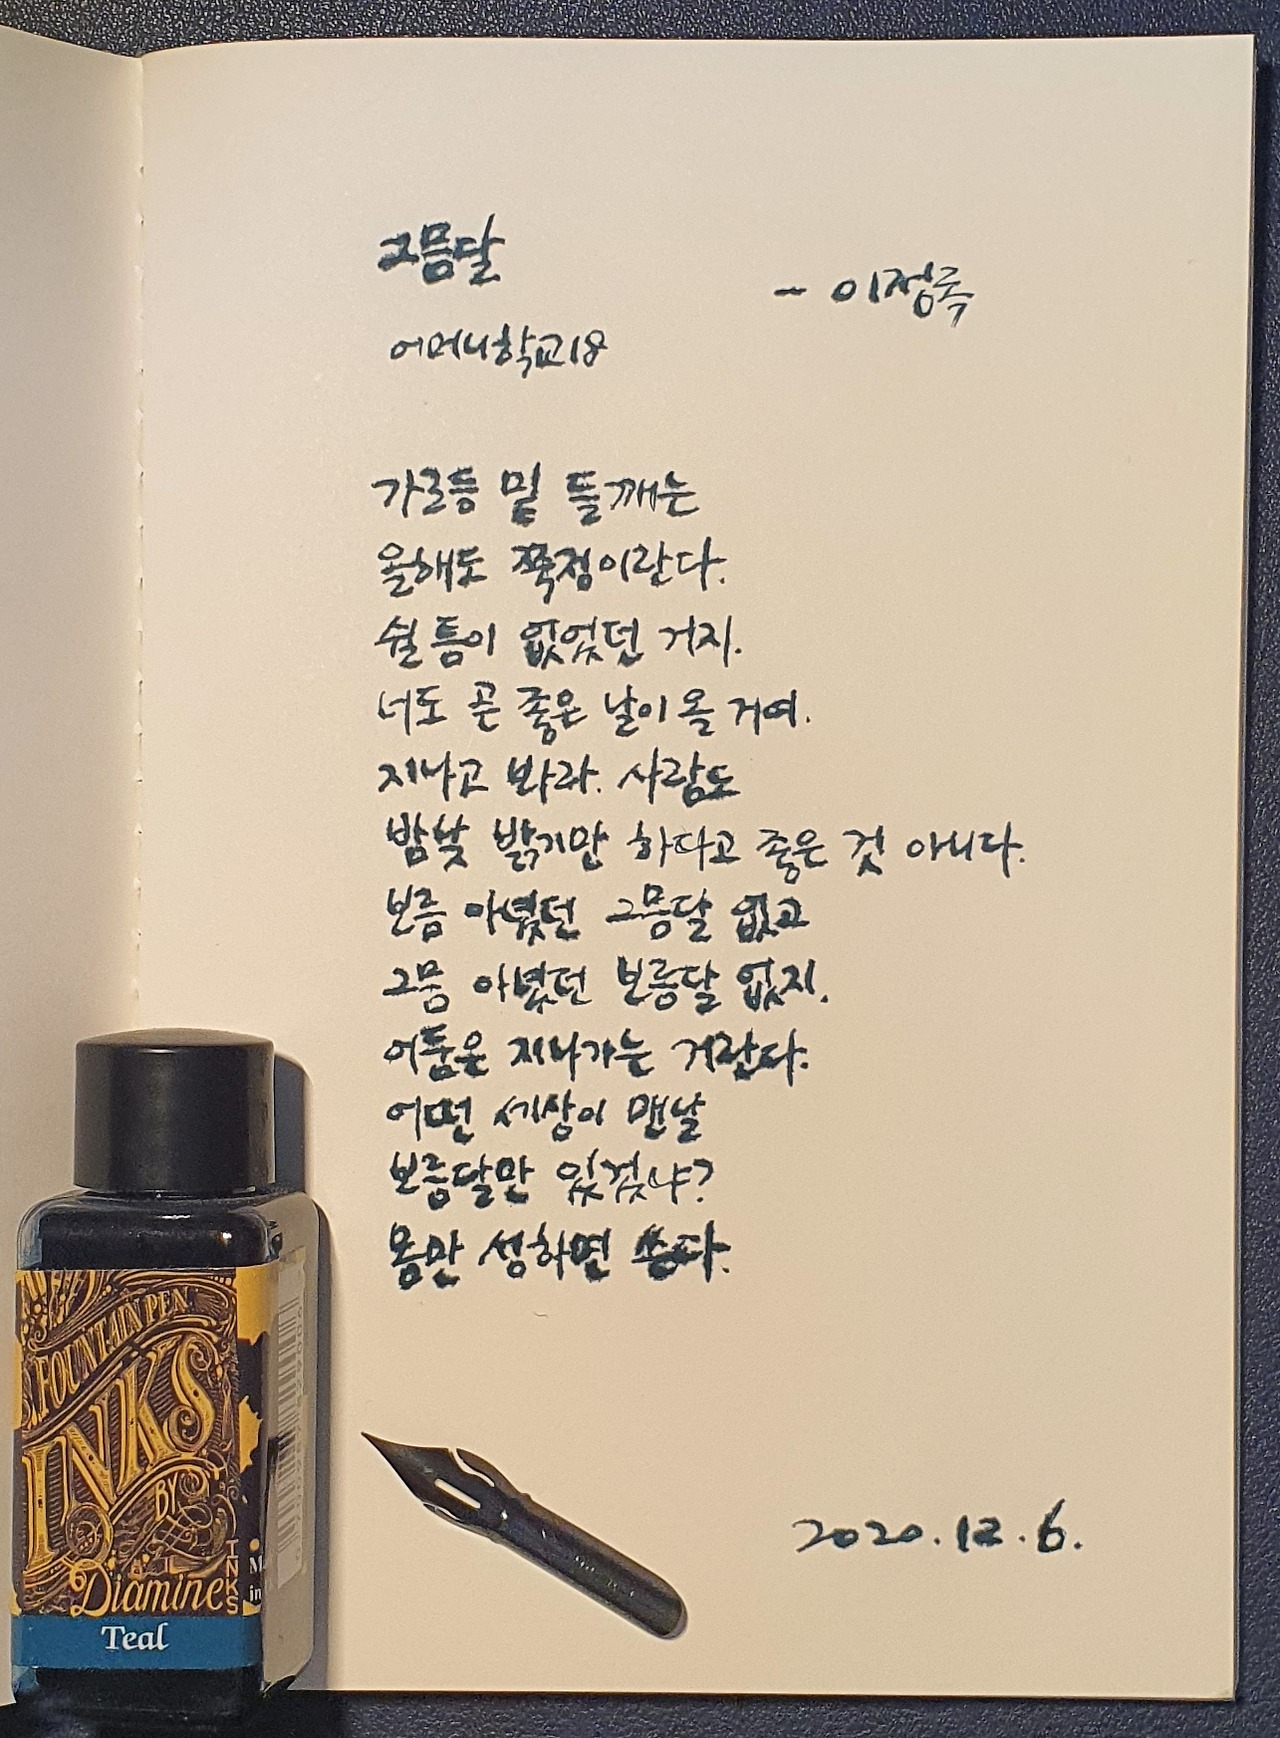 그믐달
- 이정록
어머니학교18
가로등 밑 들깨는
올해도 쭉정이란다.
쉴 틈이 없었던 거지.
너도 곧 좋은 날이 올 거여.
지나고 봐라. 사람도
밤낮 밝기만 하다고 좋은 것 아니다.
보름 아녔던 그믐달 없고
그믐 아녔던 보름달 없지.
어둠은 지나가는 거란다.
어떤 세상이 맨날
보름달만 있겄냐?
몸만 성하면 쓴다.
2020.12.6.
FOUNTAIN PEN
INKS
BY
Diamine
INKS
Teal